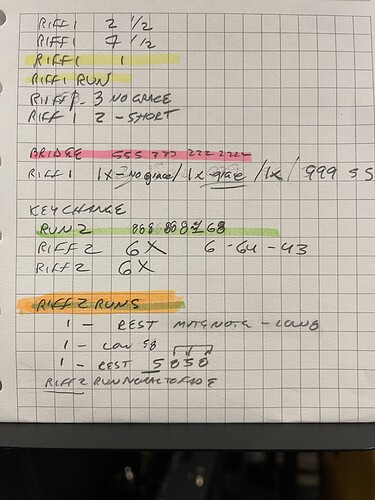 RIFF 1 2 1/2
RIFF 1 7 1/2
RIFF 1 1
RIFF 1 RUN
RIFF 3 NO GRACE
RIFF 1 2 - SHORT
BRIDGE 555 222 2222
RIFF 1 1x - no grace / 1x - grace / 1x / 999 5 5
KEY CHANGE
RUN 2 868 68
RIFF 2 6X 6 - 64 - 43
RIFF 2 6X
RIFF 2 RUNS
1 - REST NOTE -
1 - LOW 58
1 - REST 5 858
RIFF 2 RUN